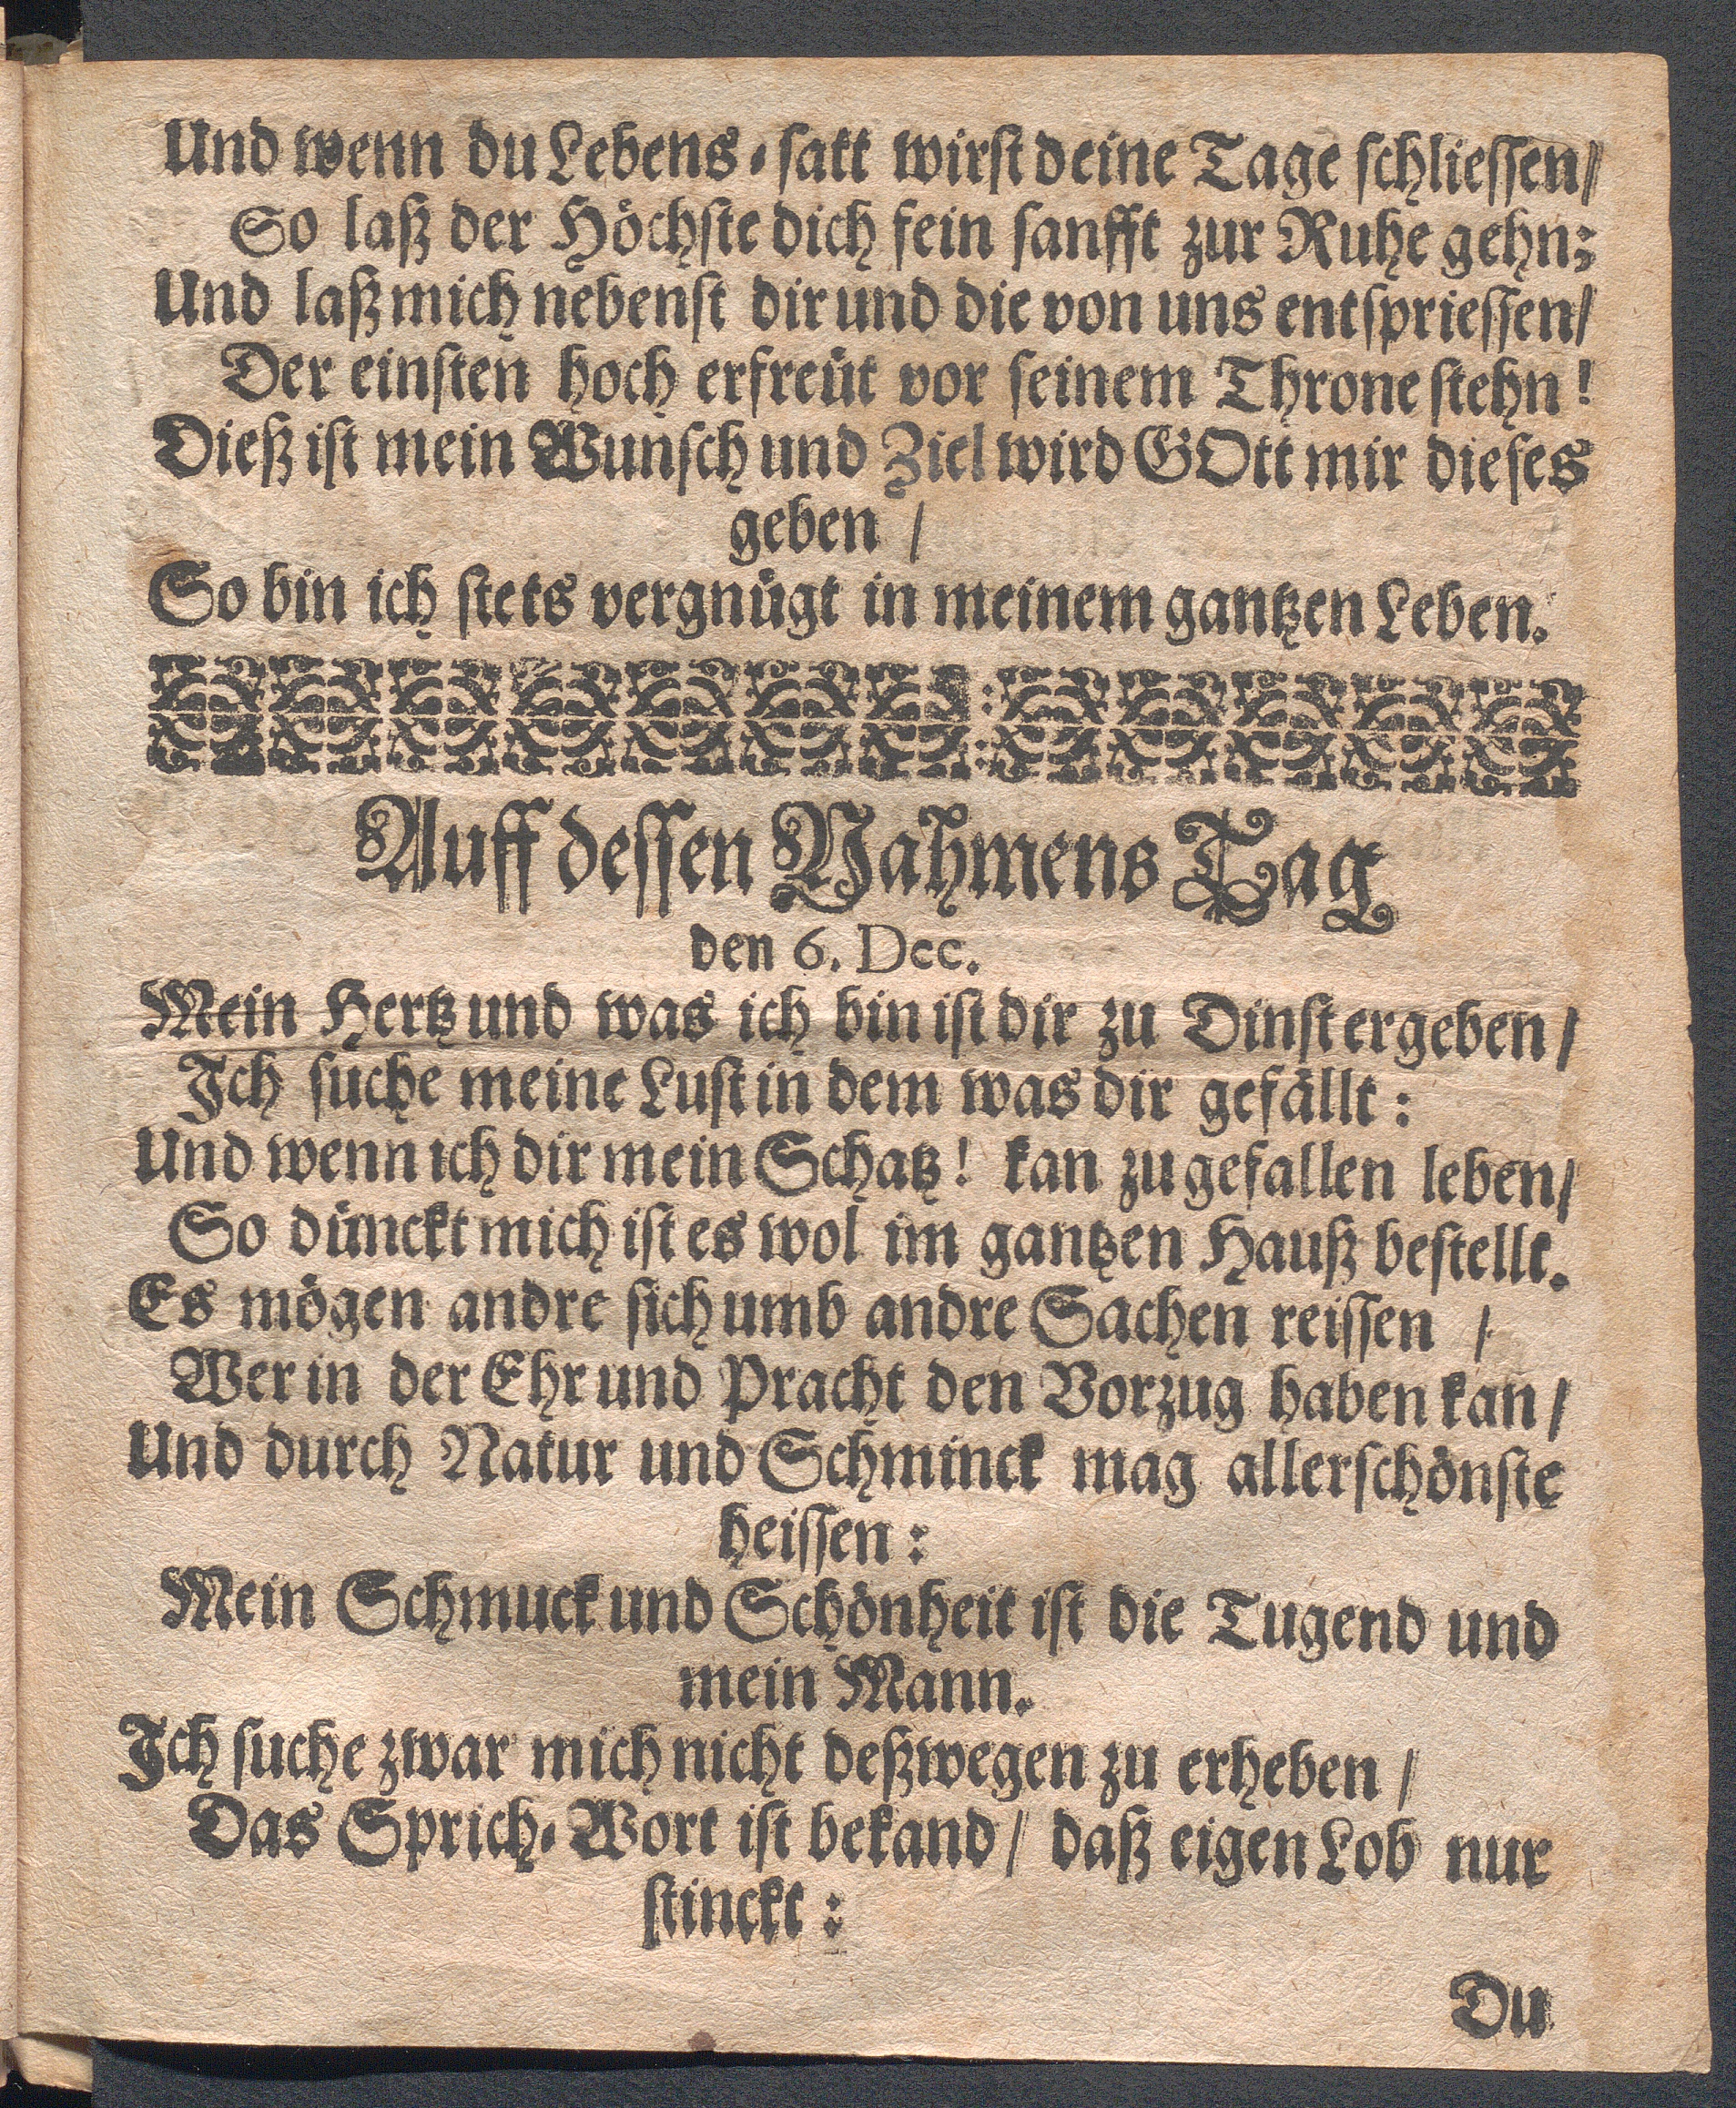 Und wenn du Lebens-satt wirst deine Tage schliessen/
So laß der Höchste dich fein sanfft zur Ruhe gehn;
Und laß mich nebenst dir und die von uns entspriessen/
Der einsten hoch erfreüt vor seinem Throne stehn!
Dieß ist mein Wunsch und Ziel wird GOtt mir dieses
geben /
So bin ich stets vergnügt in meinem gantzen Leben.
Auff dessen Nahmens Tag
den 6. Dec.
Mein Hertz und was ich bin ist dir zu Dinst ergeben/
Ich suche meine Lust in dem was dir gefällt:
Und wenn ich dir mein Schatz! kan zu gefallen leben/
So dünckt mich ist es wol im gantzen Hauß bestellt.
Es mögen andre sich umb andre Sachen reissen /
Wer in der Ehr und Pracht den Vorzug haben kan/
Und durch Natur und Schminck mag allerschönste
heissen:
Mein Schmuck und Schönheit ist die Tugend und
mein Mann.
Ich suche zwar mich nicht deßwegen zu erheben/
Das Sprich-Wort ist bekand/ daß eigen Lob nur
stinckt:
Du